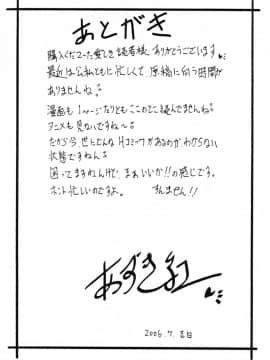 あとがき
購入くださった愛しき読者様、ありがとうございます
最近は公私ともに忙しくて、原稿に向う時間が
ありませんね。
漫画も1ページたりともここのとこ読んでませんね。
アニメも見ないですね〜。
だから今、世にどんなHコミックがあるのかわからない
状態ですねん。
困ってますねんけど、まぁいいか!!の感じです。
ホント忙しいのですよ。 すんません!!
あずき紅
2006.7. 吉日